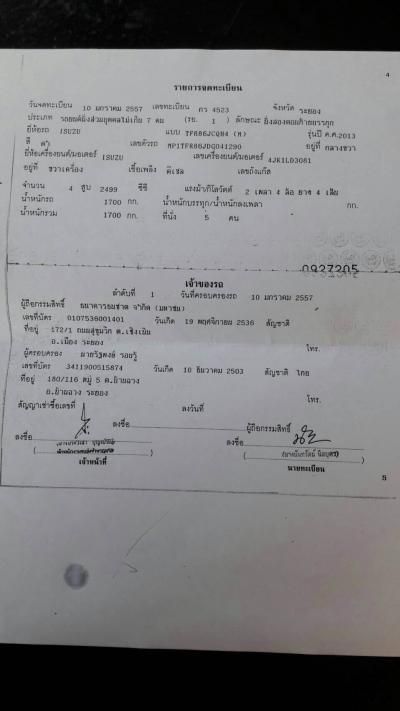 4
รายการจดทะเบียน
วันจดทะเบียน 10 มกราคม 2557 เลขทะเบียน กร 4523 จังหวัด ระยอง
ประเภท รถยนต์นั่งส่วนบุคคลไม่เกิน 7 คน (รย. 1 ) ลักษณะ นั่งสองตอนท้ายบรรทุก
ยี่ห้อรถ ISUZU แบบ TFR86JCQH4 (M) รุ่นปี ค.ศ.2013
สี ดำ เลขตัวรถ MP1TFR86JDG041290 อยู่ที่ กลางขวา
ยี่ห้อเครื่องยนต์/มอเตอร์ ISUZU เลขเครื่องยนต์/มอเตอร์ 4JK1LD3081
อยู่ที่ ขวาเครื่อง เชื้อเพลิง ดีเซล เลขถังแก๊ส
จำนวน 4 สูบ 2499 ซีซี แรงม้า/กิโลวัตต์ 2 เพลา 4 ล้อ ยาง 4 เส้น
น้ำหนักรถ 1700 กก. น้ำหนักบรรทุก/น้ำหนักลงเพลา กก.
น้ำหนักรวม 1700 กก. ที่นั่ง 5 คน
0927205
เจ้าของรถ
ลำดับที่ 1 วันที่ครอบครองรถ 10 มกราคม 2557
ผู้ถือกรรมสิทธิ์ ธนาคารธนชาต จำกัด (มหาชน)
เลขที่บัตร 0107536001401 วันเกิด 19 พฤศจิกายน 2536 สัญชาติ
ที่อยู่ 172/1 ถนนสุขุมวิท ต.เชิงเนิน
อ.เมือง ระยอง โทร.
ผู้ครอบครอง
เลขที่บัตร 3411900515874 วันเกิด 10 ธันวาคม 2503 สัญชาติ ไทย
ที่อยู่ 180/116 หมู่ 5 ต.บ้านฉาง
อ.บ้านฉาง ระยอง โทร.
สัญญาเช่าซื้อเลขที่ ลงวันที่
ลงชื่อ ผู้ถือกรรมสิทธิ์
ลงชื่อ
เจ้าหน้าที่ นายทะเบียน
5